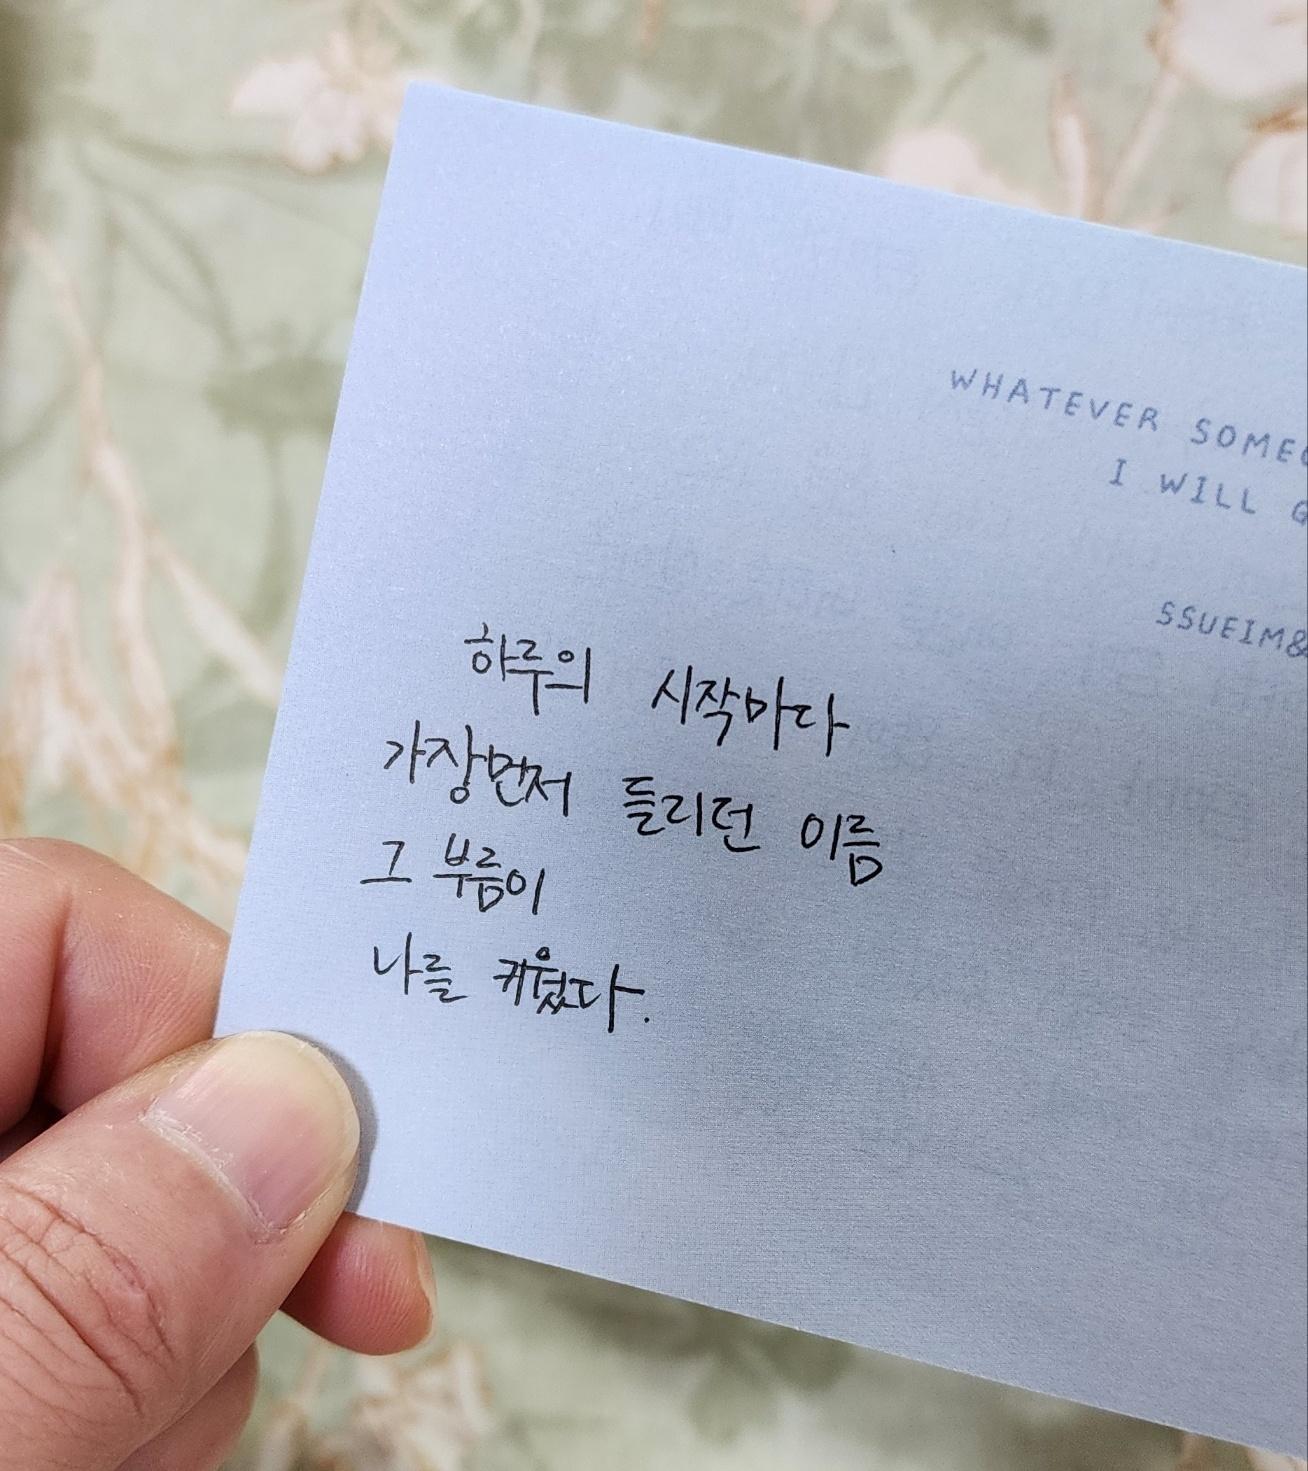 WHATEVER SOMEO
I WILL G
SSUEIM&
하루의 시작마다
가장먼저 들리던 이름
그 부름이
나를 키웠다.